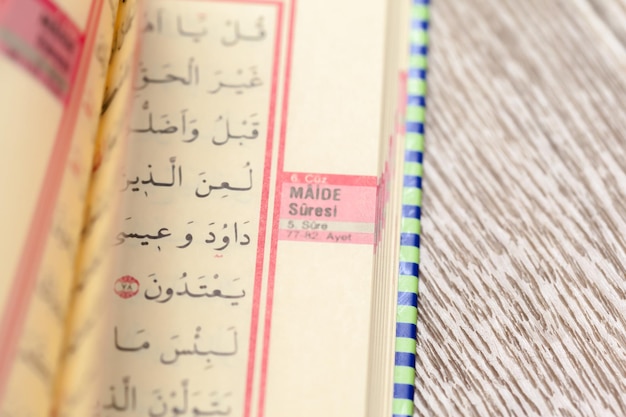 قُلْ يَٓا
غَيْرَ الْحَقِّ
قَبْلُ وَاَضَلُّوا
لُعِنَ الَّذ۪ينَ
دَاوُ۫دَ وَع۪يسَى
يَعْتَدُونَ ﴿٧٨﴾
لَبِئْسَ مَا
يَتَوَلَّوْنَ الَّذ۪ينَ
6. Cüz
MÂİDE
Sûresi
5. Sûre
77-82. Ayet